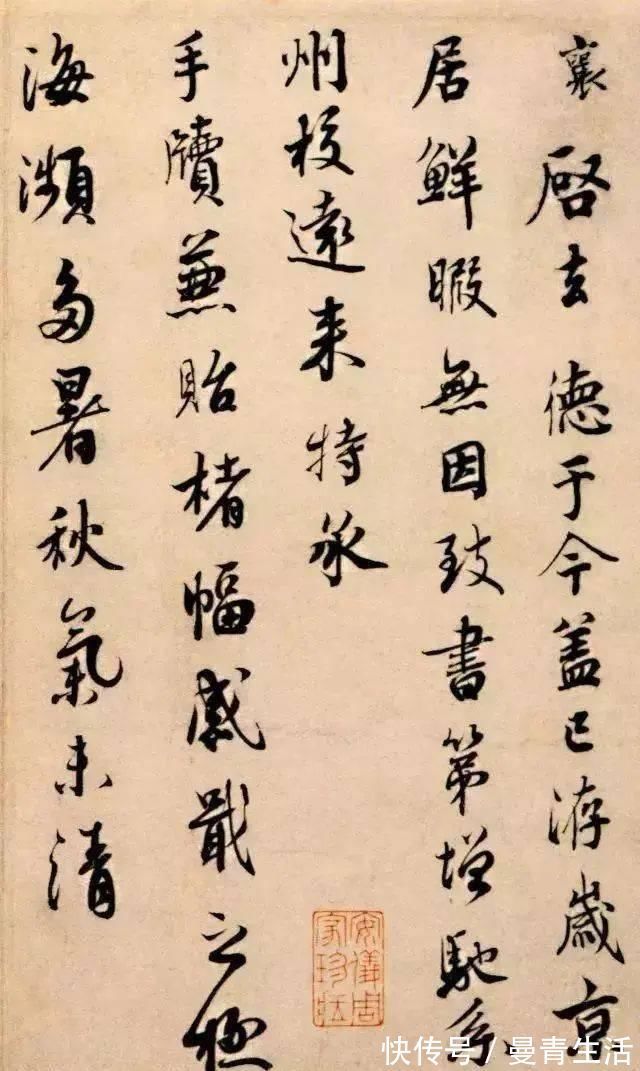 襄啓去德于今盖已洊歲京
居鮮暇無因致書第增馳系
州校遠来特承
手牘兼貽楮幅感戢之極
海瀕多暑秋氣未清
安儀周家珍藏
快传号/曼青生活